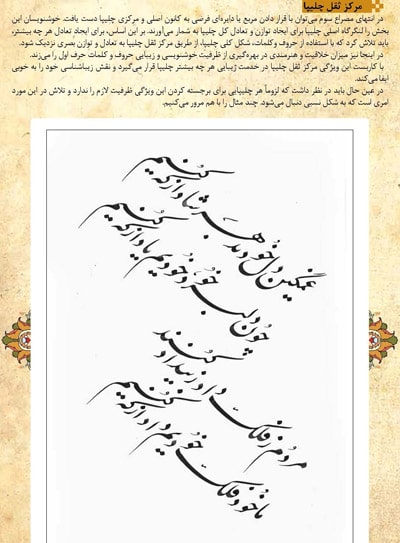 مرکز ثقل چلیپا
در انتهای مصراع سوم می‌توان با قرار دادن مربع یا دایره‌ای فرضی به کانون اصلی و مرکزی چلیپا دست یافت. خوشنویسان این
بخش را لنگرگاه اصلی چلیپا برای ایجاد توازن و تعادل کل چلیپا به شمار می‌آورند. بر این اساس، برای ایجاد تعادل هر چه بیشتر،
باید تلاش کرد که با استفاده از حروف وکلمات، شکل کلی چلیپا، از طریق مرکز ثقل چلیپا به تعادل و توازن بصری نزدیک شود.
در اینجا نیز میزان خلاقیت و هنرمندی در بهره‌گیری از ظرفیت خوشنویسی و زیبایی حروف و کلمات حرف اول را می‌زند.
با کاربست این ویژگی مرکز ثقل چلیپا در خدمت زیبایی هر چه بیشتر چلیپا قرار می‌گیرد و نقش زیباشناسی خود را به خوبی
ایفا می‌کند.
در عین حال باید در نظر داشت که لزوماً هر چلیپایی برای برجسته کردن این ویژگی ظرفیت لازم را ندارد و تلاش در این مورد
امری است که به شکل نسبی دنبال می‌شود. چند مثال را با هم مرور می‌کنیم.
غمگین دل خود به هر شاد از که کنیم
چون دلبر خود خودیم یاد از که کنیم
مردم ز فلک داد زبیداد کنند
ما خود فلک خودیم داد از که کنیم